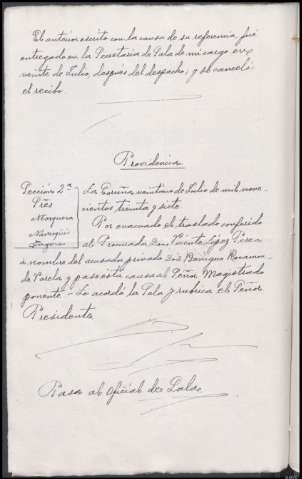 El anterior escrito con la causa de su referencia, fué
entregado en la Secretaría de Sala de mi cargo en
veinte de Julio, despues del despacho, y se canceló
el recibo.
Providencia
Sección 2ª
Sres
La Coruña veintiuno de Julio de mil nove-
cientos treinta y siete
Por evacuado el traslado conferido
al Procurador Don Vicente López Pérez
a nombre del acusador privado Don Benigno
de Varela y pase esta causa al Señor Magistrado
ponente.- Lo acordó la Sala y rubrica el Señor
Presidente
Pasa al Oficial de Sala